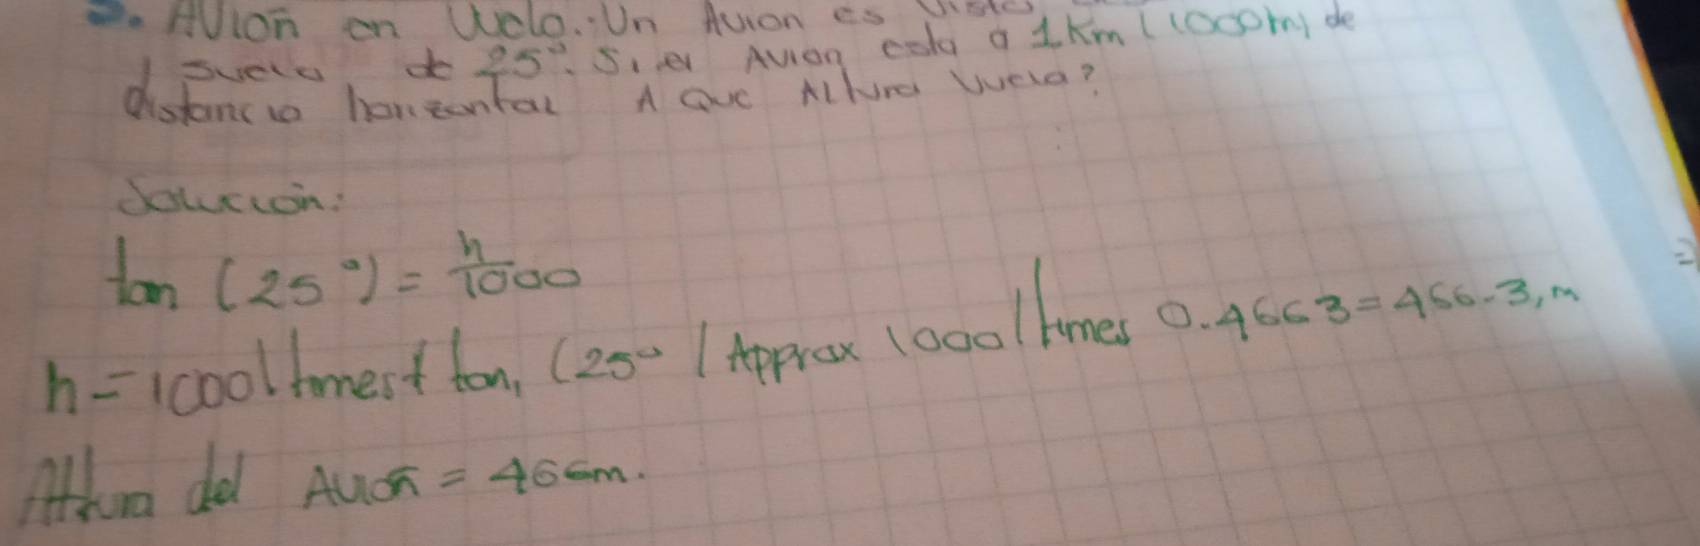 3. Avion en Vuelo. Un Avion es visto
suelo de 25°. Si el Avion esta a 1 Km (1000m) de
distancia horizontal A Que Altura Vuela?
Solución:
tan (25°) = h/1000
h = 1000 \ times \ tan, (25° \ Approx 1000 \ times 0.4663 = 466.3, m
Altura del Avión = 466m.
=